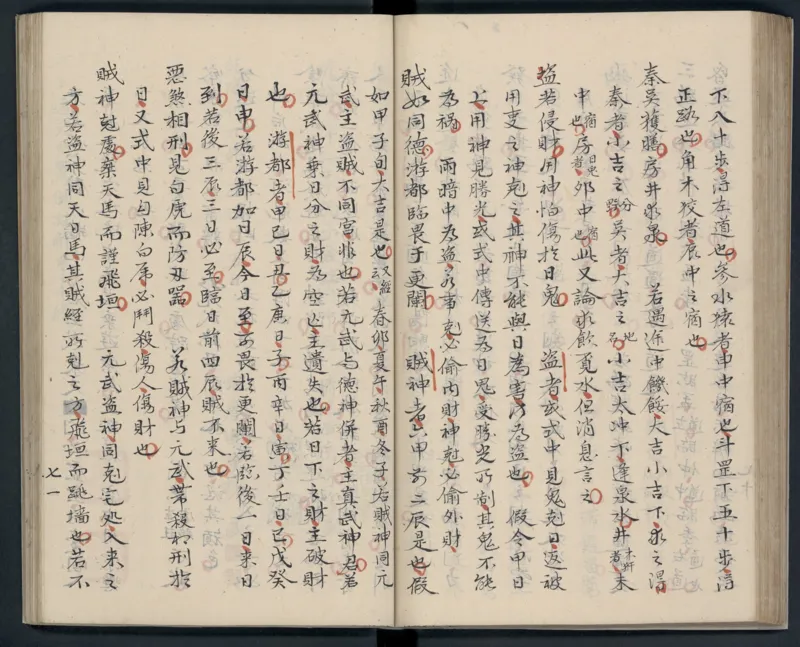 下八十步得左道也參水猿者申中宿也斗罡下五十步得
正路也角木狡者辰中之宿也
秦吳獲騰房井求泉　若遇途中饑餒大吉小吉下求之得
秦者小吉之分野吳者大吉之地名小吉太冲下逢泉水井木軒者未
中宿也房者日兎卯中宿也此又論求飲覓水但消息言之
盗若侵財用神怕傷於日鬼　盗者或式中見鬼尅日返被
用支之神尅之其神不能與日為害乃為盗也　假令甲日
上用神見勝光或式中傳送為日鬼受勝光所制其鬼不能
為禍　雨暗中為盗求事尅必偷内財神尅必偷外財
賊如同德游都臨畏于更闌　賊神者六甲前二辰是也假
如甲子旬大吉是也又經云春卯夏午秋酉冬子若賊神同元
武主盗賊不同宮非也若元武与德神併者主真武神君若
元武神乗日分之財為空亡主遺失也若日下之財主破財
也　游都者甲己日丑乙庚日子丙辛日寅丁壬日巳戊癸
日申若游都加日辰今日至可畏於更闌若臨後一日来日
到若後三辰三日必至臨日前四辰賊不来也
惡煞相刑見白虎而防丑器　若賊神与元武帯殺相刑於
日又式中見勾陳白虎必鬥殺傷人傷財也
賊神尅處乗天馬而謹飛垣　元武盗神同尅宅処入来之
方若盗神同天日馬其賊經所尅之方飛垣而跳墻也若不
七一